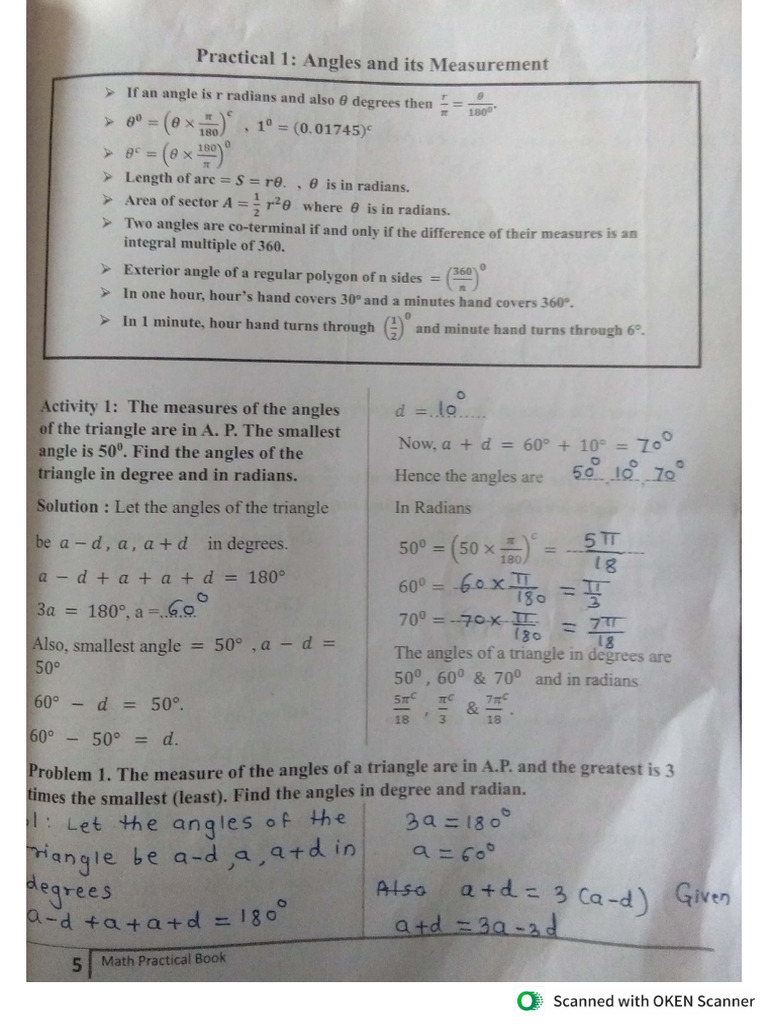 Practical 1: Angles and its Measurement
➢ If an angle is r radians and also θ degrees then r/π = θ/180⁰.
➢ θ⁰ = (θ × π/180)ᶜ , 1⁰ = (0.01745)ᶜ
➢ θᶜ = (θ × 180/π)⁰
➢ Length of arc = S = rθ. , θ is in radians.
➢ Area of sector A = 1/2 r²θ where θ is in radians.
➢ Two angles are co-terminal if and only if the difference of their measures is an
integral multiple of 360.
➢ Exterior angle of a regular polygon of n sides = (360/n)⁰
➢ In one hour, hour's hand covers 30° and a minutes hand covers 360°.
➢ In 1 minute, hour hand turns through (1/2)⁰ and minute hand turns through 6°.
Activity 1: The measures of the angles
of the triangle are in A. P. The smallest
angle is 50⁰. Find the angles of the
triangle in degree and in radians.
Solution : Let the angles of the triangle
be a – d , a , a + d in degrees.
a – d + a + a + d = 180°
3a = 180°, a =..60⁰
Also, smallest angle = 50° , a – d =
50°
60° – d = 50°.
60° – 50° = d.
d =..10⁰......
Now, a + d = 60° + 10° = 70⁰
Hence the angles are 50⁰, 10⁰, 70⁰
In Radians
50⁰ = (50 × π/180)ᶜ = 5π/18
60⁰ = 60 × π/180 = π/3
70⁰ = 70 × π/180 = 7π/18
The angles of a triangle in degrees are
50⁰ , 60⁰ & 70⁰ and in radians
5πᶜ/18 , πᶜ/3 & 7πᶜ/18 .
Problem 1. The measure of the angles of a triangle are in A.P. and the greatest is 3
times the smallest (least). Find the angles in degree and radian.
l : Let the angles of the
riangle be a-d, a, a+d in
degrees
a-d +a+a+d = 180⁰
3a = 180⁰
a = 60⁰
Also a+d = 3 (a-d) Given
a+d = 3a-3d
5 Math Practical Book
Scanned with OKEN Scanner